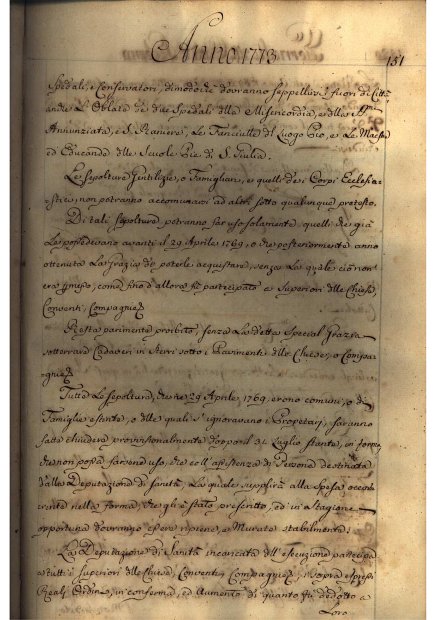 Anno 1773
151
Spedali, e Conservatori, dimodochè dovranno seppellirsi fuori di Città
anche le Oblate de due Spedali della Misericordia, e della SS.
Annunziata, e S. Raniero, Le Fanciulle del Luogo Pio, e Le Maestre
ed Educande delle Scuole Pie di S. Giulia.
Le Sepolture Gentilizie, o Famigliari, e quelli dei Corpi Ecclesia=
=stici, non potranno accomunarsi ad altri sotto qualunque pretesto.
Di tali Sepolture potranno far uso solamente quelli che già
Le possedevano avanti il 29 Aprile 1769, o che posteriormente anno
ottenuta La Grazia di poterle acquistare, senza La quale ciò non
era permesso, come fino d'allora fù partecipato a Superiori delle Chiese,
Conventi, Compagnie
Resta parimente proibito, senza La detta Special Grazia
sotterrare Cadaveri in sotto i Pavimenti delle Chiese, o Compa=
=gnie
Tutte Le Sepolture, che il 29 Aprile 1769 erono comuni, o di
Famiglie estinte, o delle quali s'ignoravano i Propetarj, saranno
fatte chiudere provvisionalmente dopo il 31 Luglio stante, in forma
che non possa farsene uso, che coll'assistenza di Persona destinata
dalla Deputazione di Sanità, La quale supplirà alla Spesa occor=
=rente nella forma, che gli è stato prescritto, ed in Stagione
opportuna dovranno essere ripiene, e Murate stabilmente.
La Deputazione di Sanità incaricata dell'esecuzione partecipa
a tutti i Superiori delle Chiese, Conventi, Compagnie i sopra espressi
Reali Ordini, in conferma, ed Aumento di quanto fù dedotto a
Loro